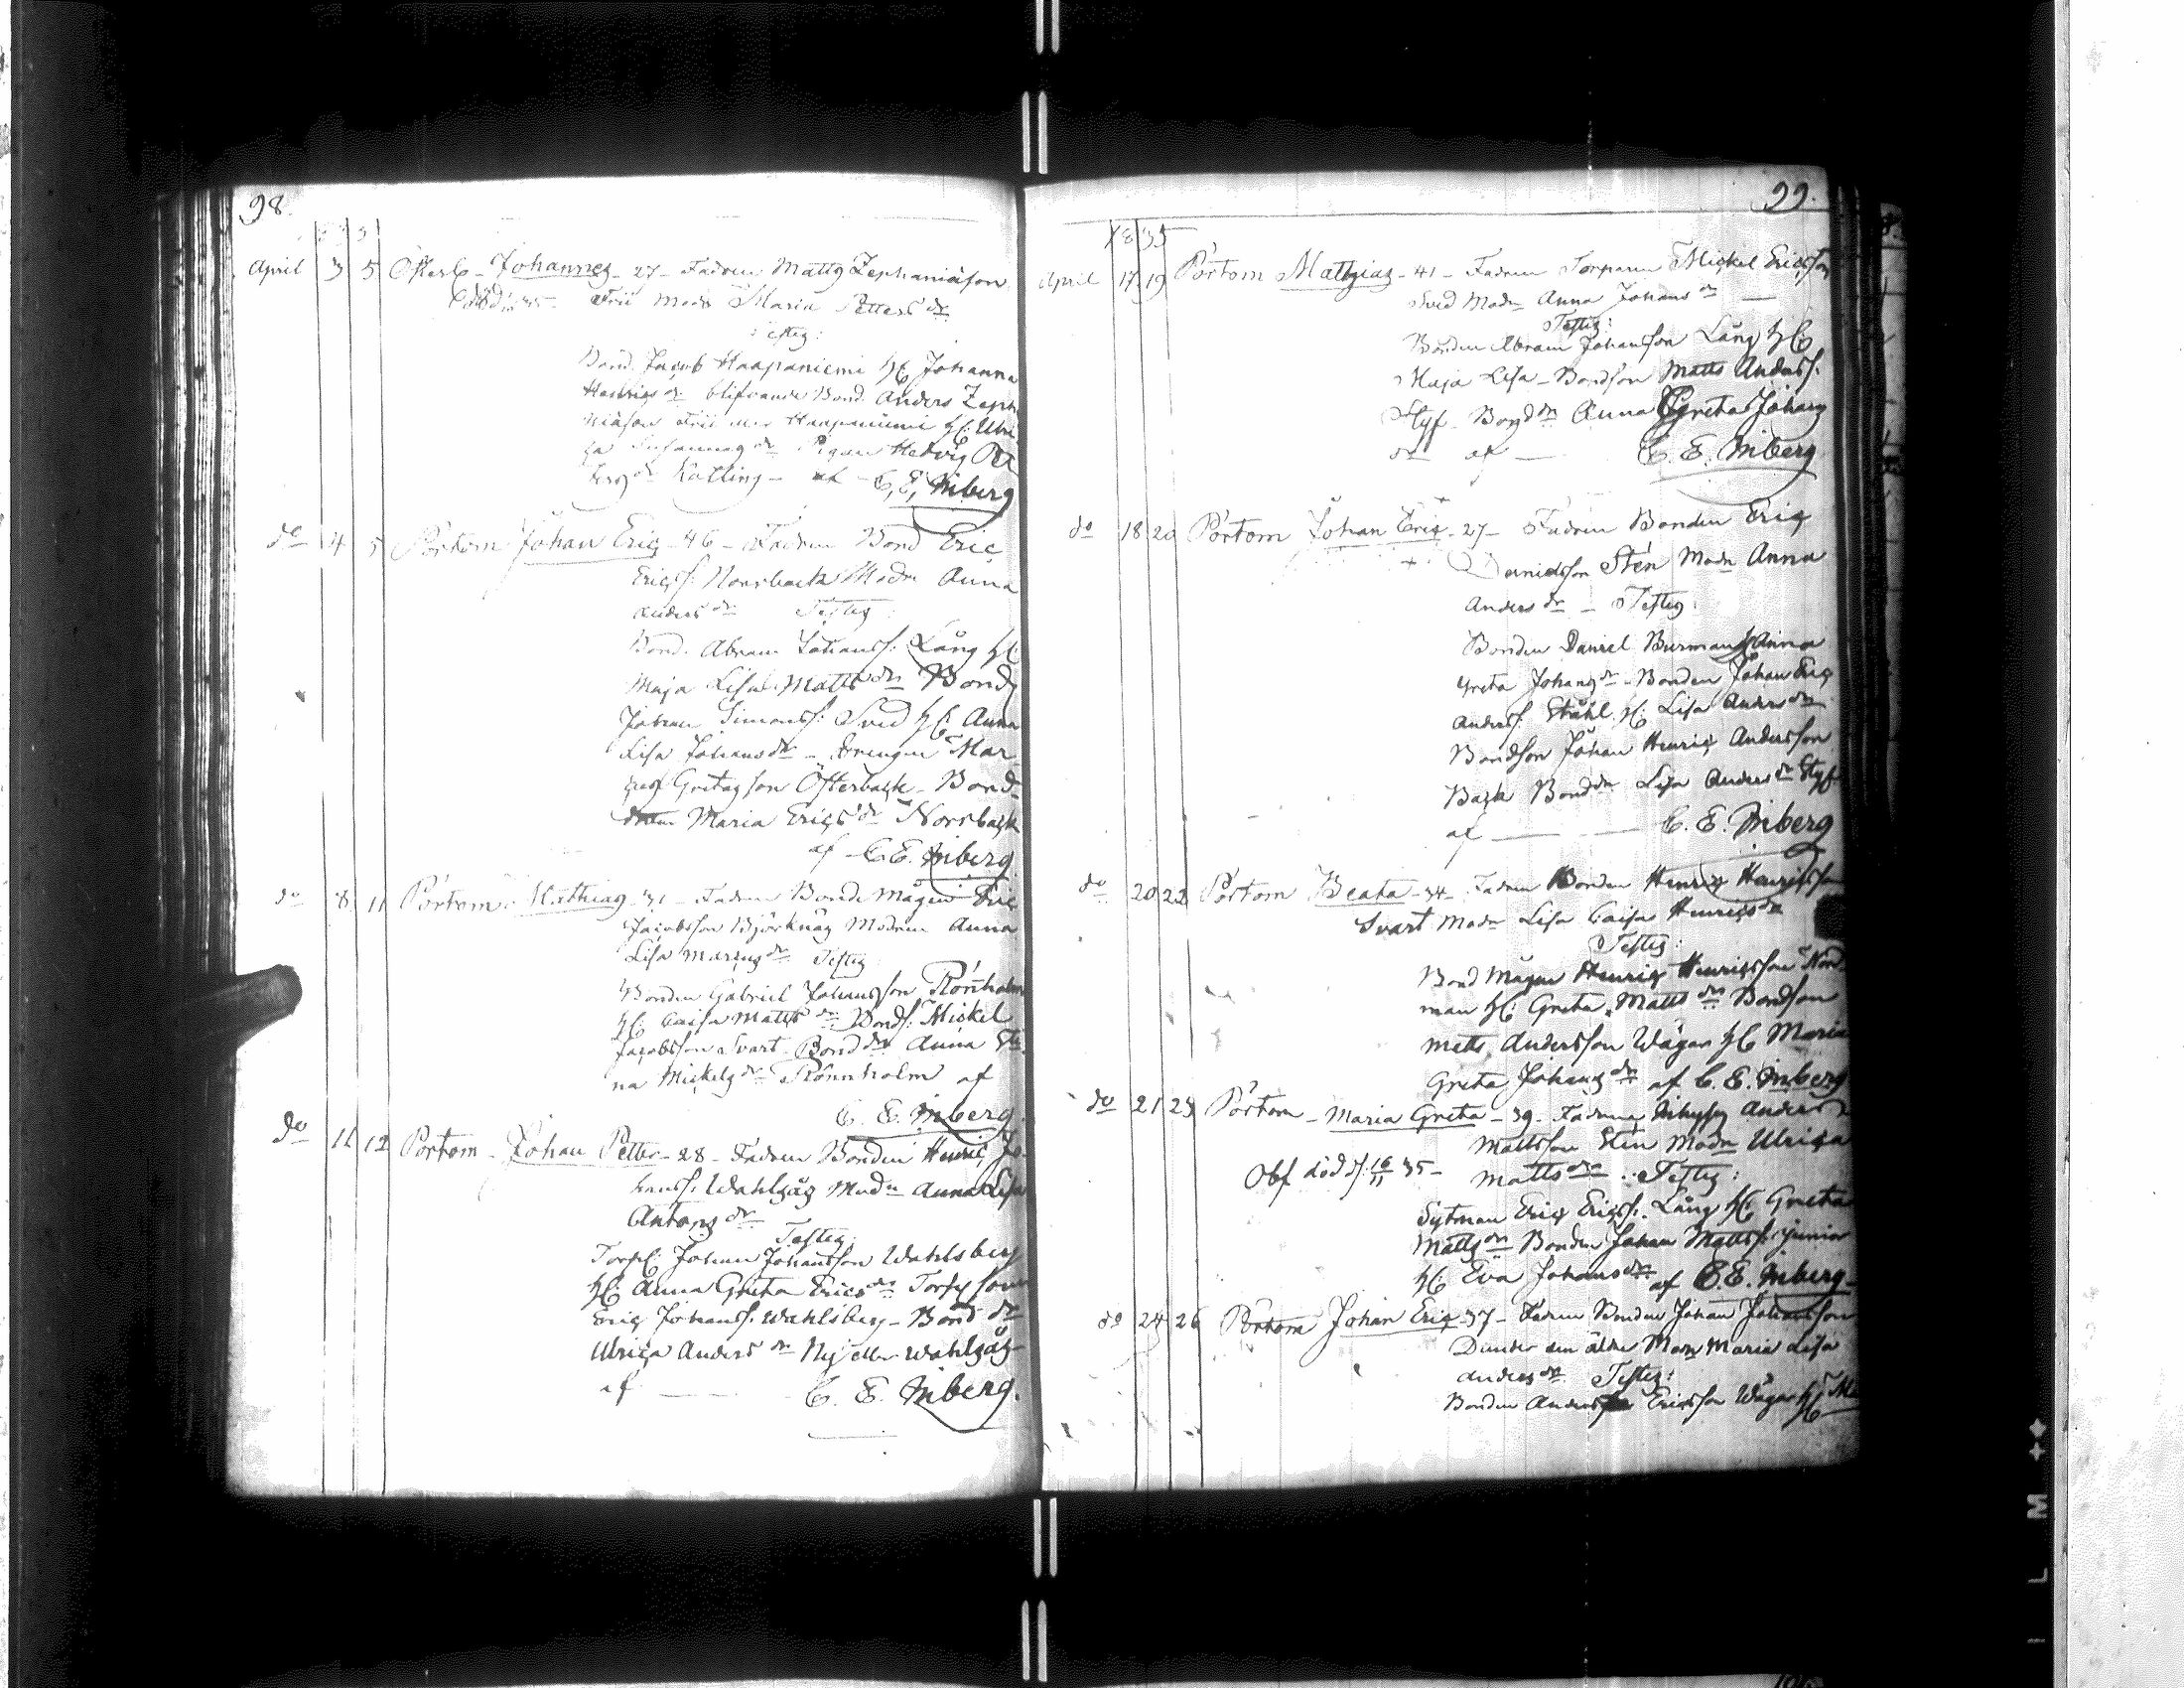 98.
April 3 5 Österb - Johannes - 27 - Fadren Matts Zephaniäson
Frii Modr Maria Petters dr
Testes:
Bond. Jacob Haapaniemi H: Johanna
Henrics dr blifvande Bond. Anders Zepha
niäson Frii Haapaniemi H: Ulri
ca Pigan Hedvig Pet
ters dr Kåtling - af - C. E. Inberg
do 4 5 Pörtom Johan Eric - 46 - Fadren Bond Eric
Ericss: Norrback Modrn Anna
Anders dr Testes:
Bond. Abram Johanss: Lång H:
Maja Lisa Matts dr Bond
Johan Simonss: Sved H: Anna
Lisa Johans dr - Drengen Mar
cus Gretasson Österback - Bond
Maria Erics dr Norrback
af - C. E. Inberg
do 8 11 Pörtom Mathias - 31 - Fadren Bonde Mågen Eric
Jacobsson Björknäs Modren Anna
Lisa Marcus dr Testes:
Bonden Gabriel Johansson Rönnholm
H: Caisa Matts dr Bonds: Mickel
Jacobsson Svart Bond dr Anna Ste
na Mickels dr Rönnholm af
C. E. Inberg.
do 11 12 Pörtom - Johan Petter - 28 - Fadren Bonden Henric Jo
hanss: Wahlgås Modrn Anna Lisa
Antons dr
Testes:
Torp: Johan Johansson Wahlsberg
H: Anna Greta Erics dr Torp son
Eric Johanss: Wahlsberg - Bond dr
Ulrica Anders dr Nij eller Wahlgås
af - C. E. Inberg.
99.
1835
April 17 19 Pörtom Matthias - 41 - Fadren Torparen Mickel Ericsson
Svid Modrn Anna Johans dr
Testes:
Bonden Abram Johansson Lång H:
Maja Lisa - Bondson Matts Anderss:
Styf - Bond dr Anna Greta Johans
dr af - C. E. Inberg
do 18 20 Pörtom Johan Eric - 27 - Fadren Bonden Eric
Danielsson Sten Modrn Anna
Anders dr - Testes:
Bonden Daniel Burman H: Anna
Greta Johans dr - Bonden Johan Eric
Anderss: Ståhl H: Lisa Anders dr
Bondson Johan Henric Andersson
Back Bond dr Lisa Anders dr Styf
af - C. E. Inberg
do 20 22 Pörtom Beata - 34 - Fadren Bonden Henric Henricsson
Svart Modr Lisa Caisa Henrics dr
Testes:
Bond Mågen Henric Henricsson Nord
man H: Greta Matts dr Bondson
Matts Andersson Wägar H: Maria
Greta Johans dr af C. E. Inberg
do 21 23 Pörtom - Maria Greta - 39 - Fadren Inhyses Anders
Mattsson Sten Modrn Ulrica
Obs död d: 16/11 35 - Matts dr Testes:
Sytman Eric Ericss: Lång H: Greta
Matts dr Bonden Johan Mattss: junior
H: Eva Johans dr af C. E. Inberg
do 24 26 Pörtom Johan Eric - 37 - Fadren Bonden Johan Johansson
Dunder den äldre Modrn Maria Lisa
Anders dr Testes:
Bonden Anders Ericsson Wägar H: Ma